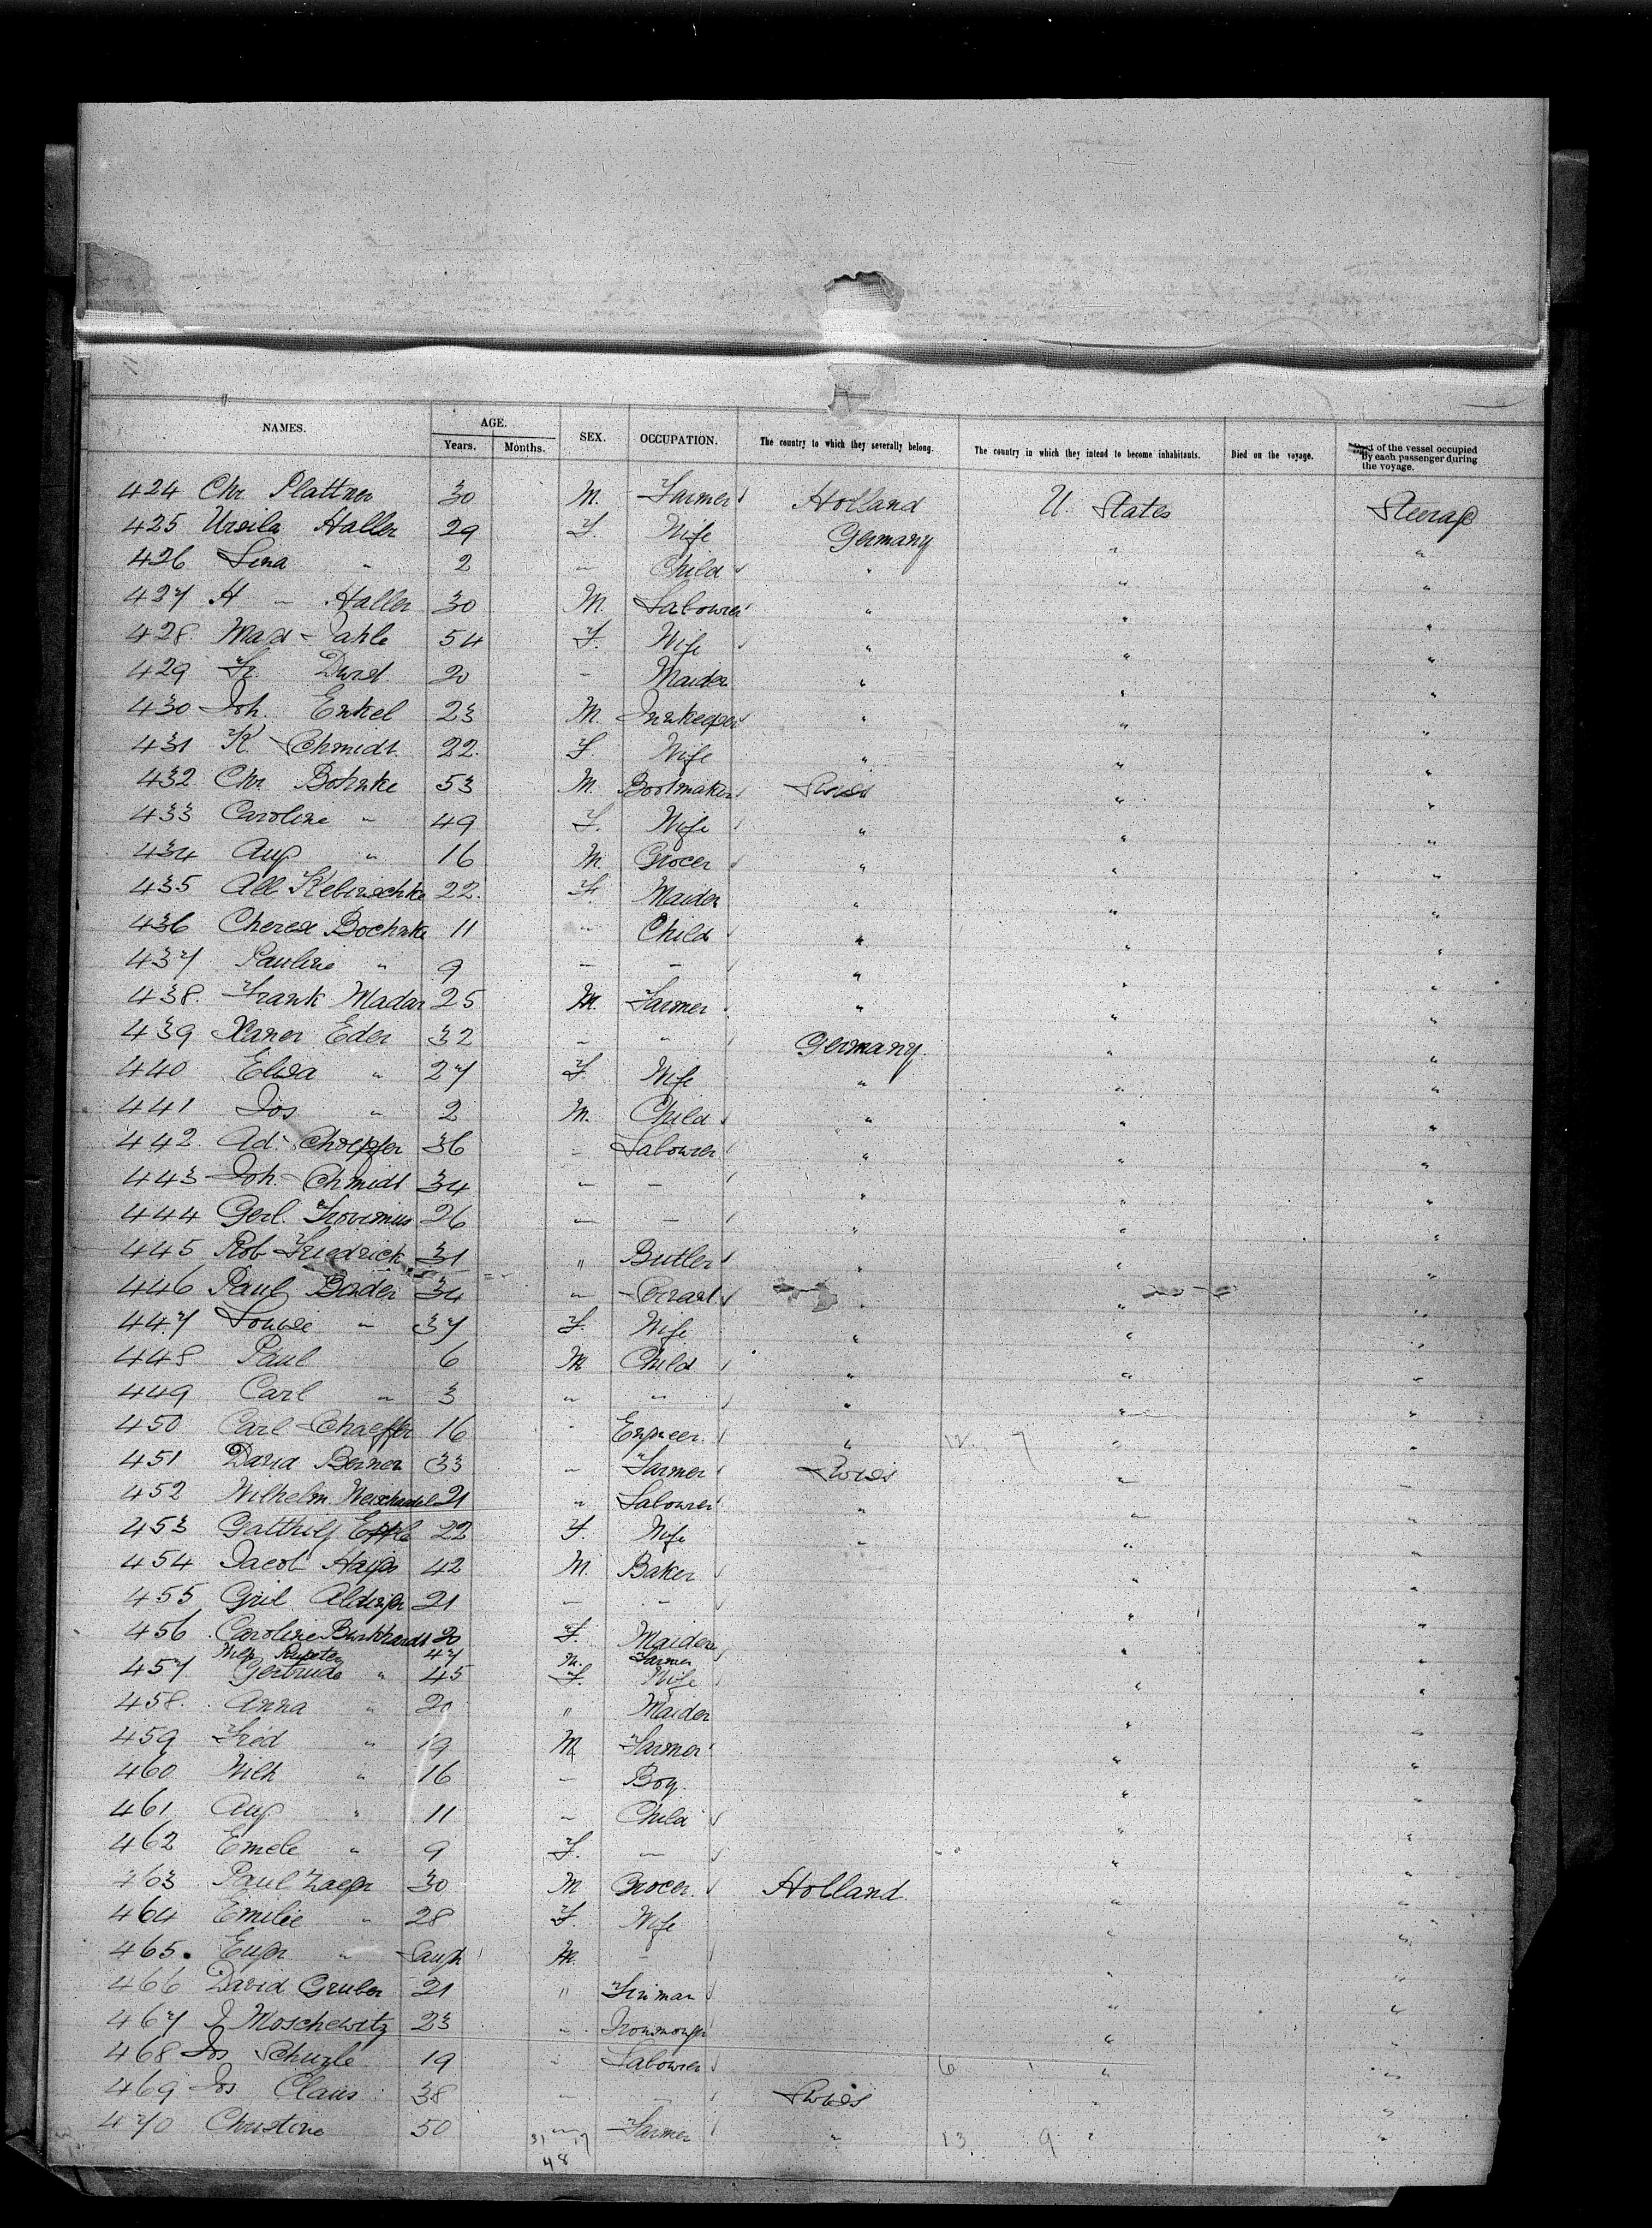 NAMES. AGE. SEX. OCCUPATION. The country to which they severally belong. The country in which they intend to become inhabitants. Died on the voyage. Part of the vessel occupied by each passenger during the voyage.
Years. Months.
424 Chr Plattner 30 M. Farmer Holland U. States Steerage
425 Ursila Haller 29 F. Wife Germany " "
426 Lina " 2 " Child " " "
427 H - Haller 30 M. Labourer " " "
428 Max 54 F. Wife " " "
429 Fr. 20 " Maiden " " "
430 Joh. Enkel 23 M. Innkeeper " " "
431 K Schmidt 22. F. Wife " " "
432 Chr Bohnke 53 M. Bootmaker Swiss " "
433 Caroline " 49 F. Wife " " "
434 Aug " 16 M Grocer " " "
435 22. F. Maiden " " "
436 Bochnke 11 " Child " " "
437 Pauline " 9 " " " " "
438. Frank Madar 25 M. Farmer " " "
439 Xaner Eder 32 " " Germany. " "
440 Elsa " 27 F. Wife " " "
441 Jos " 2 M. Child " " "
442. Ad. Schoepfer 36 " Labourer " " "
443 Joh. Schmidt 34 " " " " "
444 Gerl. 26 " " " " "
445 Rob Friedrick 31 " Butler " " "
446 Paul Bader 34 " Servant. " " "
447 Louise " 37 F. Wife " " "
448 Paul 6 M Child " " "
449 Carl " 3 " " " " "
450 Carl Schaeffer 16 " Engneer. " " "
451 David Berner 33 " Farmer Swiss " "
452 Wilhelm 21 " Labourer " " "
453 Epple 22 F. Wife " " "
454 Jacob 42 M. Baker " "
455 21 " " " "
456 Caroline Burkhardt 20 F. Maiden " "
Wilh 47 M. Farmer
457 Gertrude " 45 F. Wife " "
458. Anna " 20 " Maiden " "
459 Fred " 19 M Farmer " "
460 Wilh " 16 " Boy. " "
461 Aug " 11 " Child " "
462 Emele " 9 F. " " "
463 Paul 30 M Grocer. Holland. " "
464 Emilie " 28 F. Wife " "
465. " M. " " "
466 David Gruber 21 " Firiman " "
467 J Moschewitz 23 " Ironmonger " "
468 Jos 19 " Labourer " "
469 Jos Claus 38 " " Swiss " "
470 Christine 50 " Farmer " 13 9 " "
31 17
48